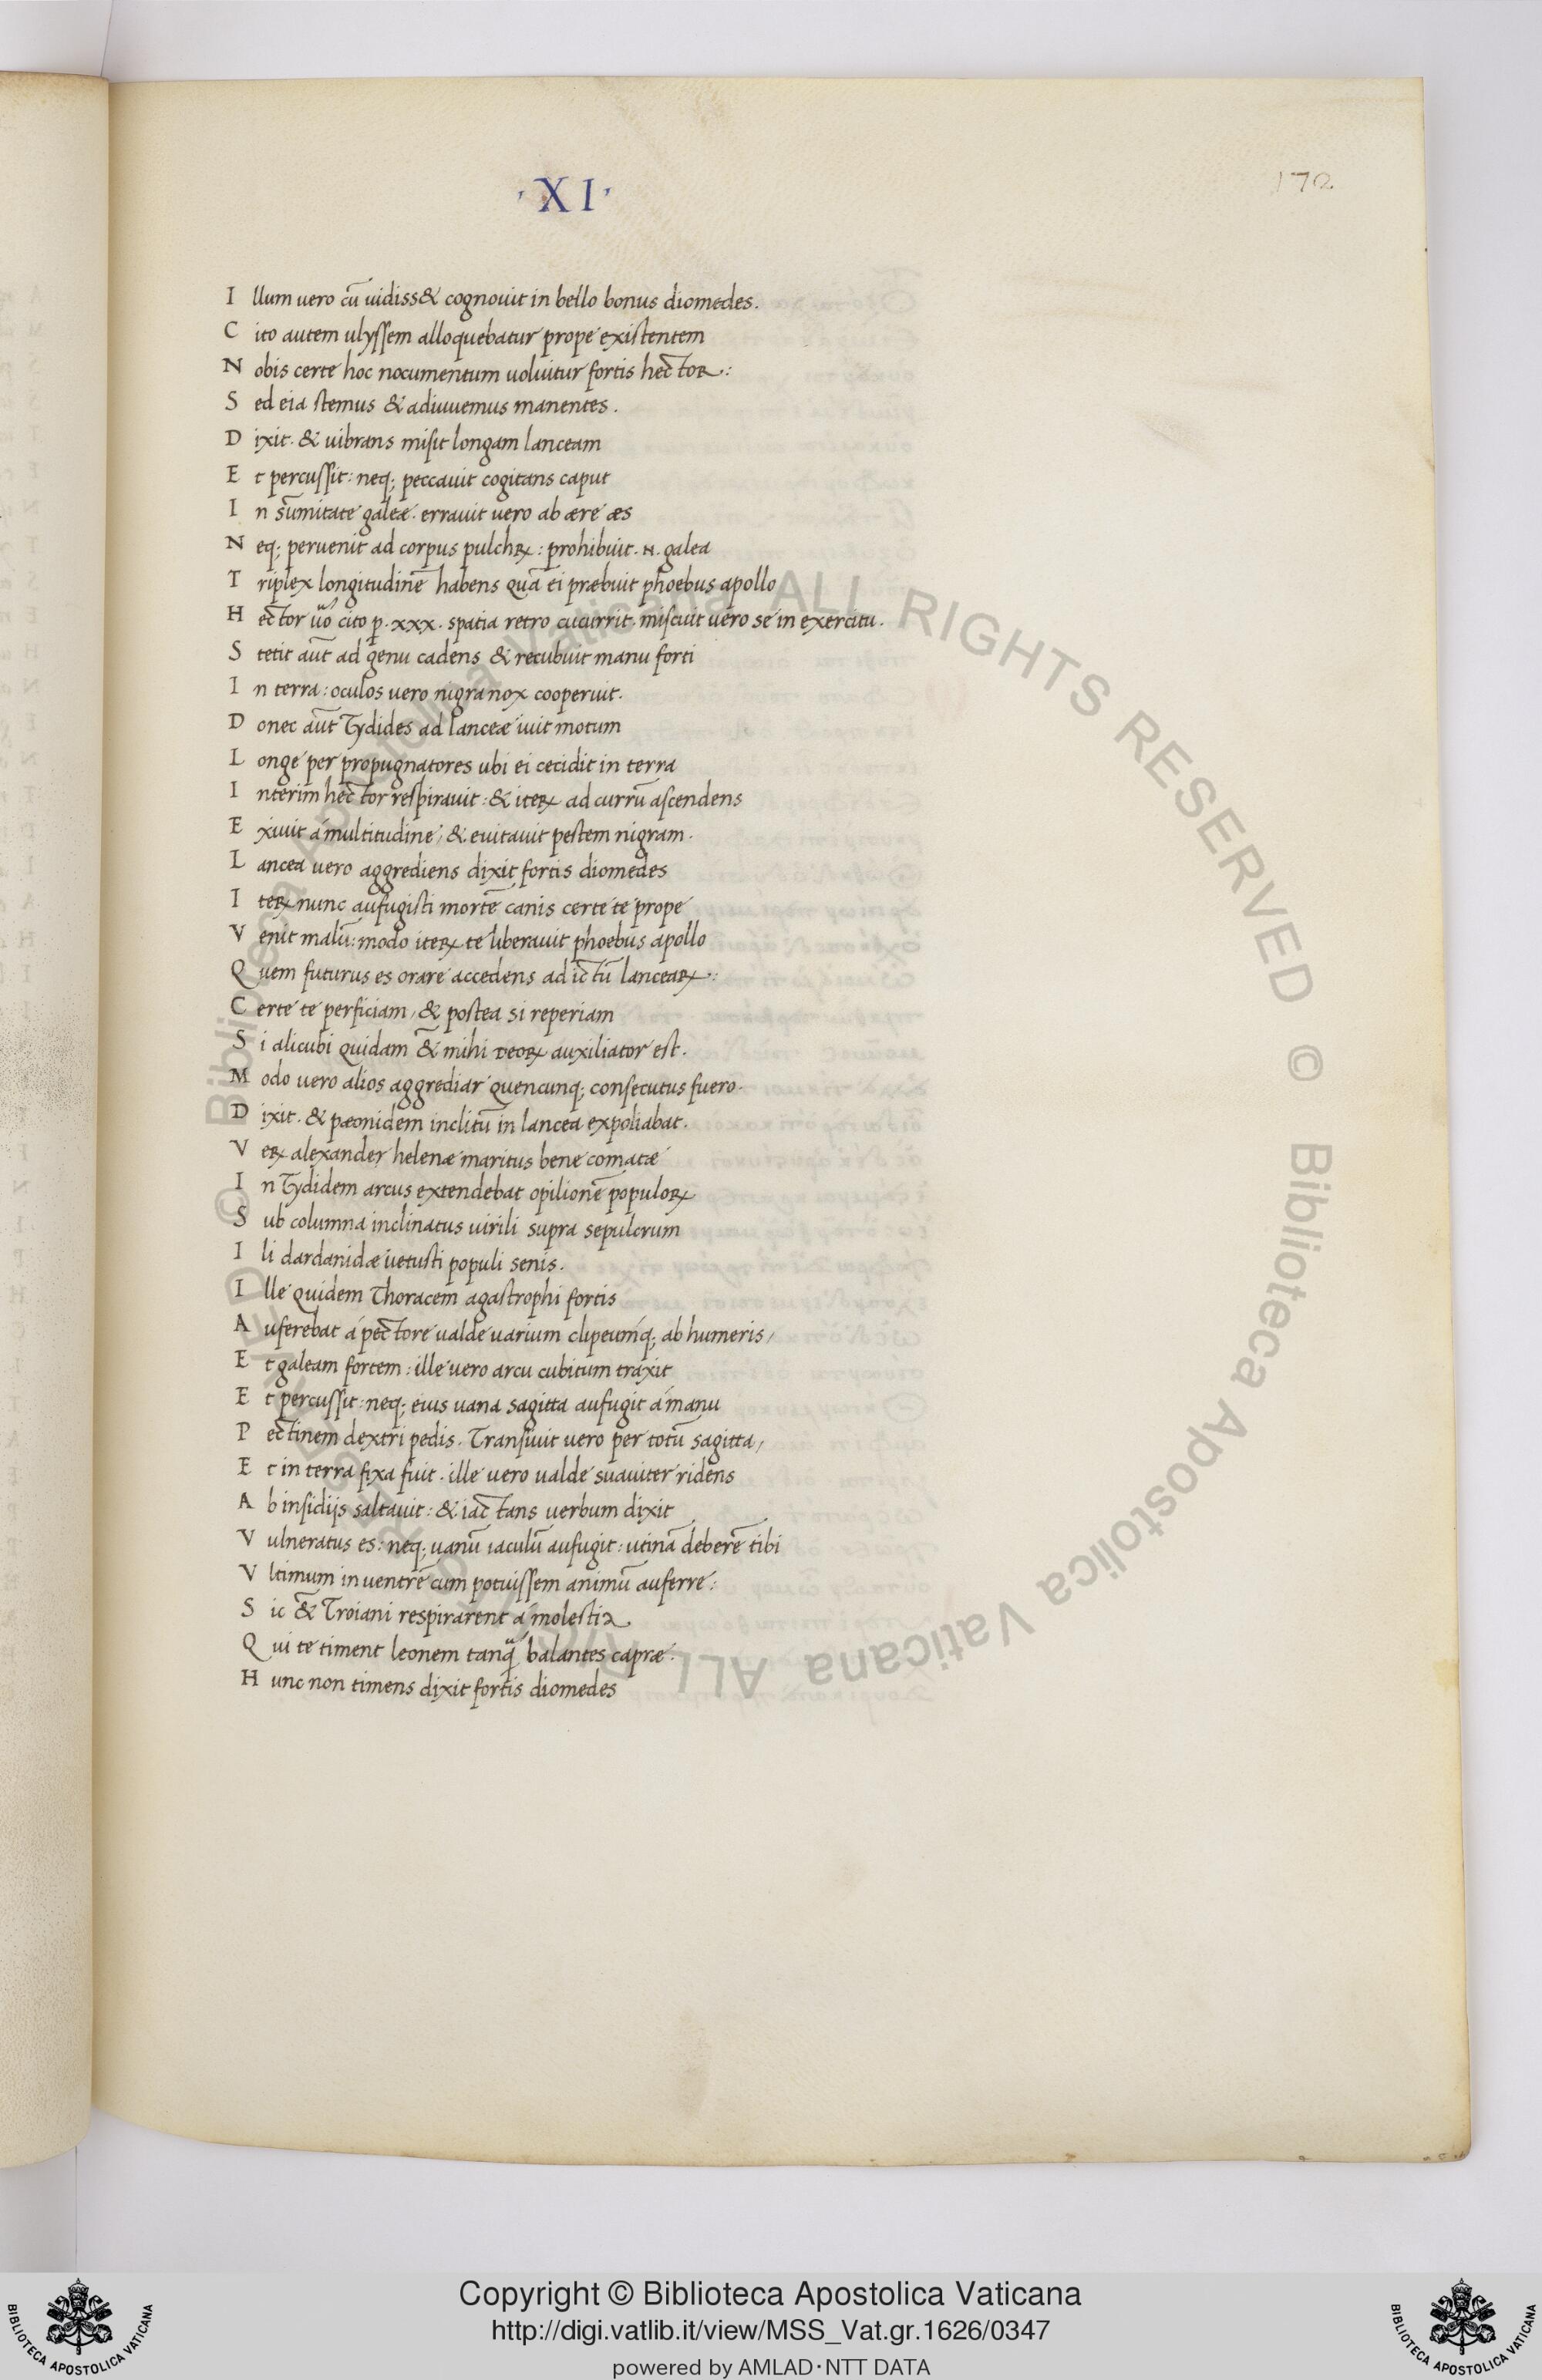 ·XI·
172
Illum uero cū uidiss& cognouit in bello bonus diomedes.
Cito autem ulyssem alloquebatur prope existentem
Nobis certe hoc nocumentum uoluitur fortis hector.:
Sed eia stemus & adiuuemus manentes.
Dixit. & uibrans misit longam lanceam
Et percussit: neq; peccauit cogitans caput
In sūmitate galeæ. errauit uero ab ære æs
Neq; peruenit ad corpus pulchꝝ: prohibuit .n. galea
Triplex longitudinē habens quā ei præbuit phoebus apollo
Hector uo᷑ cito ꝑ .xxx. spatia retro cucurrit. miscuit uero se in exercitu.
Stetit aūt ad genu cadens & recubuit manu forti
In terra: oculos uero nigra nox cooperuit.
Donec aūt Tydides ad lanceæ iuit motum
Longe per propugnatores ubi ei cecidit in terra
Interim hector respirauit: & iteꝝ ad currū ascendens
Exiuit á multitudine, & euitauit pestem nigram.
Lancea uero aggrediens dixit fortis diomedes
Iteꝝ nunc aufugisti mortē canis certe te prope
Venit malū: modo iteꝝ te liberauit phoebus apollo
Quem futurus es orare accedens ad ictū lanceaꝝ.:
Certe te perficiam, & postea si reperiam
Si alicubi quidam & mihi deoꝝ auxiliator est.
Modo uero alios aggrediar quencunq; consecutus fuero.
Dixit. & pæonidem inclitū in lancea expoliabat.
Veꝝ alexander helenæ maritus bene comatæ
In Tydidem arcus extendebat opilionē populoꝝ
Sub columna inclinatus uirili supra sepulcrum
Ili dardanidæ uetusti populi senis.
Ille quidem Thoracem agastrophi fortis
Auferebat á pectore ualde uarium clipeumq; ab humeris,
Et galeam fortem: ille uero arcu cubitum traxit
Et percussit: neq; eius uana sagitta aufugit á manu
Pectinem dextri pedis. Transiuit uero per totū sagitta,
Et in terra fixa fuit. ille uero ualde suauiter ridens
Ab insidijs saltauit: & iactans uerbum dixit
Vulneratus es: neq; uanū iaculū aufugit: utinā deberē tibi
Vltimum in uentrē cum potuissem animū auferre:
Sic & Troiani respirarent á molestia.
Qui te timent leonem tanq̃ balantes capræ.
Hunc non timens dixit fortis diomedes
© Biblioteca Apostolica Vaticana ALL RIGHTS RESERVED © Biblioteca Apostolica Vaticana ALL RIGHTS RESERVED
Copyright © Biblioteca Apostolica Vaticana
http://digi.vatlib.it/view/MSS_Vat.gr.1626/0347
powered by AMLAD·NTT DATA
BIBLIOTECA APOSTOLICA VATICANA
BIBLIOTECA APOSTOLICA VATICANA